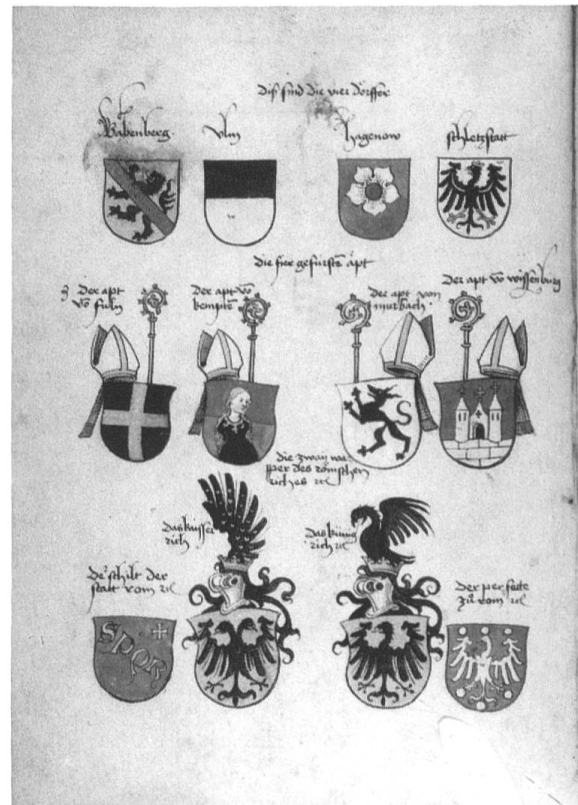 Diß sind die vier dörffer
Babenberg
vlm
hagenow
schletzstatt
die fier gefürste apt
Der apt
vo fuln
Der apt vo
kempte
der apt von
murbach
Der apt vo wissenburg
die zway wa
pper des römschen
riches
das kaisser
rich
das küng
rich
De schilt der
statt rom
SPQR
Der per seite
zu rom